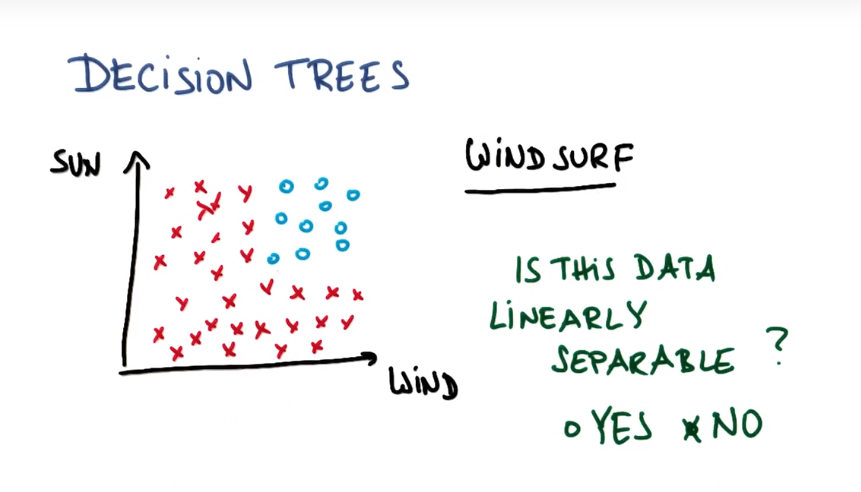 DECISION TREES
SUN
WIND
WINDSURF
IS THIS DATA
LINEARLY
SEPARABLE ?
o YES x NO